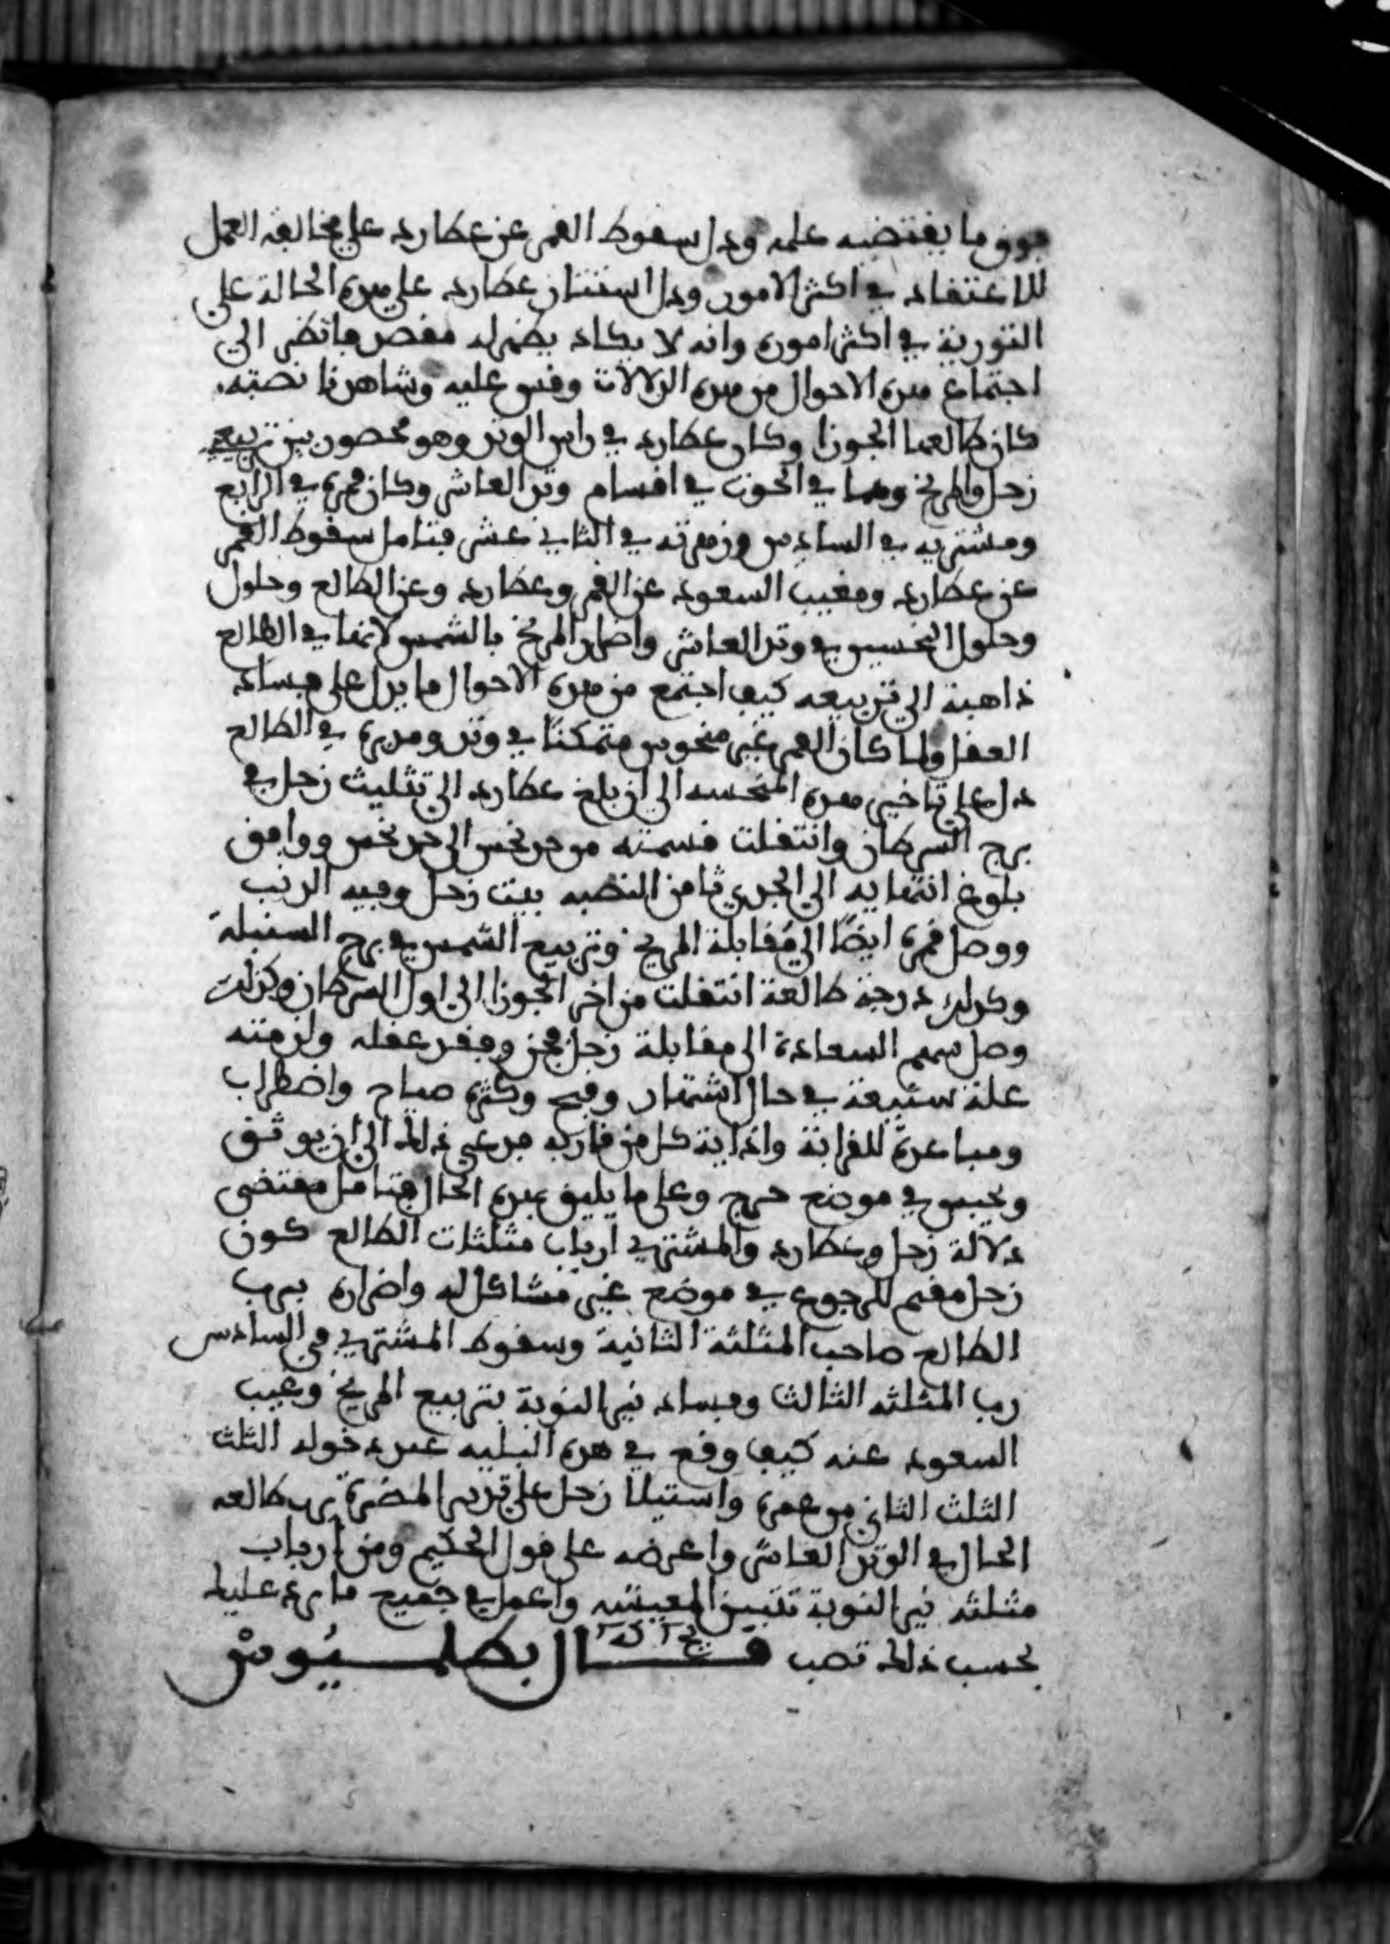 فوق ما يقتضيه علمه ودل سقوط القمر عن عطارد على مخالفة العمل
للاعتقاد في اكثر الامور ودل استتار عطارد على هذه الحالة على
التورية في اكثر اموره وانه لا يكاد يظهر له مقصد فانظر الى
اجتماع هذه الاحوال من هذه الدلالات وقس عليه وشاهدنا نصبته
كان طالعها الجوزا وكان عطارد في راس الوتد وهو محصور بين تربيعي
زحل والمريخ وهما في الحوت في اقسام وتد العاشر وكان قمره في الرابع
ومشتريه في السادس وزهرته في الثاني عشر فتامل سقوط القمر
عن عطارد ومغيب السعود عن القمر وعطارد وعن الطالع وحلول
وحلول النحسين في وتد العاشر واضرار المريخ بالشمس لانها في الطالع
ذاهبة الى تربيعه كيف اجتمع من هذه الاحوال ما يدل على فساد
العقل ولما كان القمر غير منحوس متمكنًا في وتد ومدبره في الطالع
دل على تاخير هذه المنحسه الى ان بلغ عطارد الى تثليث زحل في
برج السرطان وانتقلت قسمته من حد نحس الى حد نحس ووافق
بلوغ انتهايه الى الجدي ثامن النصبه بيت زحل وفيه الذنب
ووصل قمره ايضًا الى مقابلة المريخ وتربيع الشمس في برج السنبلة
وكذلك درجة طالعة انتقلت من اخر الجوزا الى اول السرطان وكذلك
وصل سهم السعادة الى مقابلة زحل فجن وفقد عقله ولزمته
علة شنيعة في حال اشتهار وقبح وكثرة صياح واضطراب
ومباعدة للقرابة واذاية كل من قاربه من غير ذلك الى ان يوثق
ويحبس في موضع حرج وعلى ما يليق بهذه الحال فتامل مقتضى
دلالة زحل وعطارد والمشتري ارباب مثلثات الطالع كون
زحل مقيم للرجوع في موضع غير مشاكل له واضراره برب
الطالع صاحب المثلثة الثانية وسقوط المشتري في السادس
رب المثلثه الثالث وفساد نير النوبة بتربيع المريخ وغيب
السعود عنه كيف وقع في هذه البليه عند دخوله الثلث
الثلث الثاني من عمره واستيلا زحل على تدبير المضرة برب طالعه
الحال في الوتد العاشر واعرضه على قول الحكيم ومن ارباب
مثلثه نير النوبة تتبين المعيشه واعمل في جميع ما يرد عليك
بحسب ذلك تصب قال بطلميوس